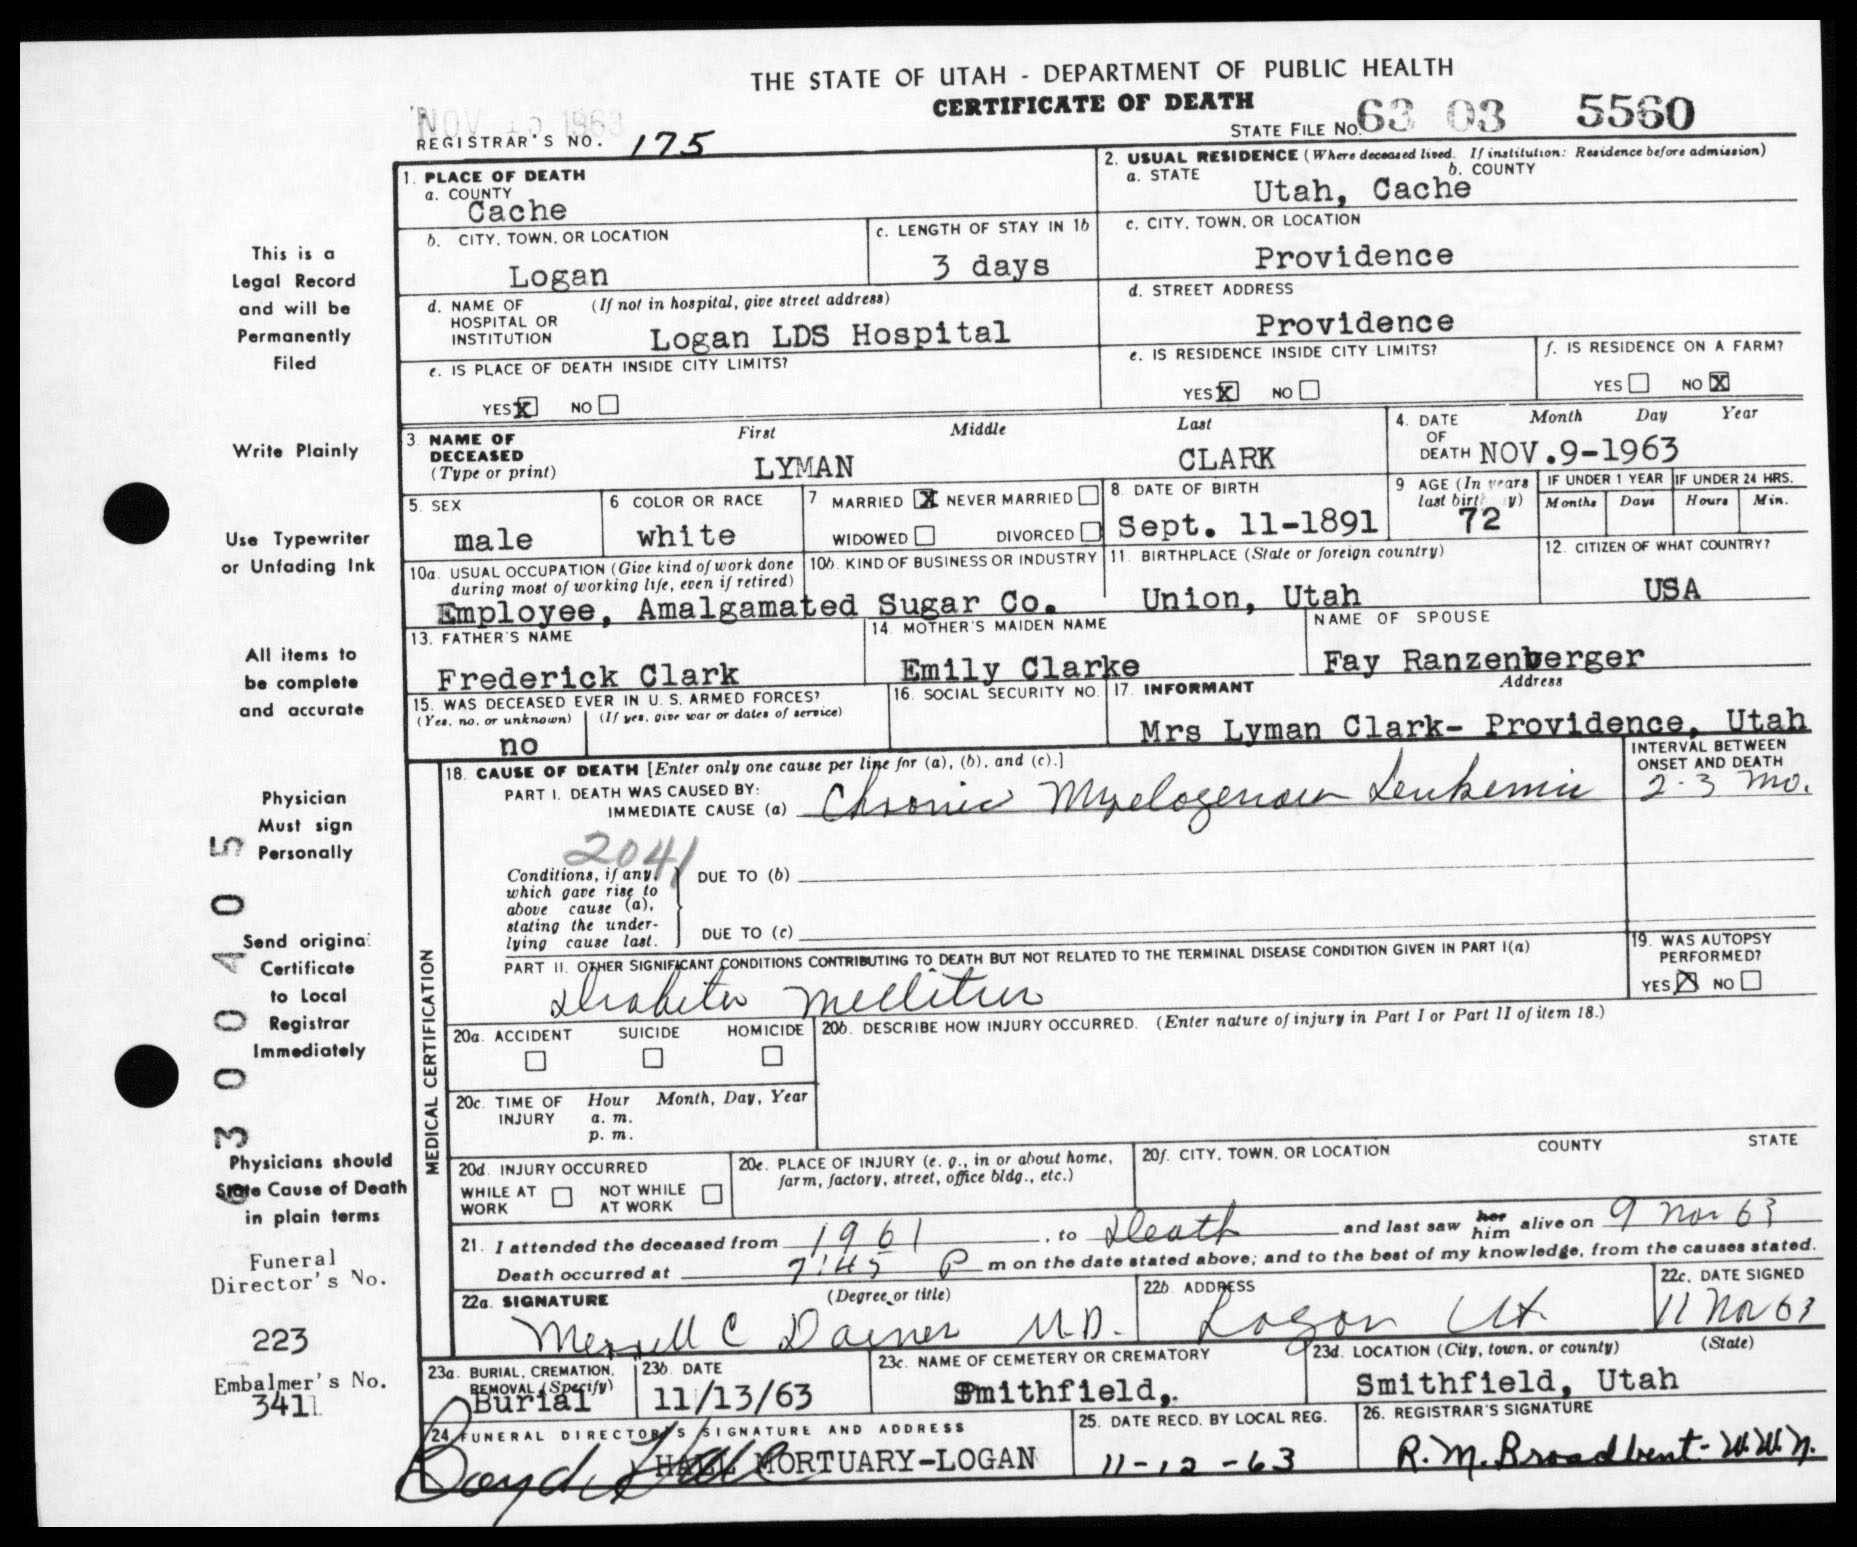 THE STATE OF UTAH - DEPARTMENT OF PUBLIC HEALTH
CERTIFICATE OF DEATH
NOV 15 1963
REGISTRAR'S NO. 175
STATE FILE NO. 63 03 5560
1. PLACE OF DEATH
a. COUNTY
Cache
2. USUAL RESIDENCE (Where deceased lived. If institution: Residence before admission)
a. STATE b. COUNTY
Utah, Cache
b. CITY, TOWN, OR LOCATION
Logan
c. LENGTH OF STAY IN 1b
3 days
c. CITY, TOWN, OR LOCATION
Providence
d. NAME OF HOSPITAL OR INSTITUTION (If not in hospital, give street address)
Logan LDS Hospital
d. STREET ADDRESS
Providence
e. IS PLACE OF DEATH INSIDE CITY LIMITS?
YES X NO
e. IS RESIDENCE INSIDE CITY LIMITS?
YES X NO
f. IS RESIDENCE ON A FARM?
YES NO X
3. NAME OF DECEASED (Type or print)
First Middle Last
LYMAN CLARK
4. DATE OF DEATH Month Day Year
NOV.9-1963
5. SEX
male
6 COLOR OR RACE
white
7 MARRIED X NEVER MARRIED
WIDOWED DIVORCED
8. DATE OF BIRTH
Sept. 11-1891
9 AGE (In years last birthday)
72
IF UNDER 1 YEAR IF UNDER 24 HRS.
Months Days Hours Min.
10a. USUAL OCCUPATION (Give kind of work done during most of working life, even if retired)
10b. KIND OF BUSINESS OR INDUSTRY
Employee, Amalgamated Sugar Co.
11. BIRTHPLACE (State or foreign country)
Union, Utah
12. CITIZEN OF WHAT COUNTRY?
USA
13. FATHER'S NAME
Frederick Clark
14. MOTHER'S MAIDEN NAME
Emily Clarke
NAME OF SPOUSE
Fay Ranzenberger
15. WAS DECEASED EVER IN U. S. ARMED FORCES?
(Yes, no, or unknown) (If yes, give war or dates of service)
no
16. SOCIAL SECURITY NO.
17. INFORMANT Address
Mrs Lyman Clark- Providence, Utah
MEDICAL CERTIFICATION
18. CAUSE OF DEATH [Enter only one cause per line for (a), (b), and (c).]
INTERVAL BETWEEN ONSET AND DEATH
PART I. DEATH WAS CAUSED BY:
IMMEDIATE CAUSE (a) Chronic Myelogenous Leukemia
2-3 mo.
2041
Conditions, if any, which gave rise to above cause (a), stating the underlying cause last.
DUE TO (b)
DUE TO (c)
PART II. OTHER SIGNIFICANT CONDITIONS CONTRIBUTING TO DEATH BUT NOT RELATED TO THE TERMINAL DISEASE CONDITION GIVEN IN PART I(a)
Diabetes Mellitus
19. WAS AUTOPSY PERFORMED?
YES X NO
20a. ACCIDENT SUICIDE HOMICIDE
20b. DESCRIBE HOW INJURY OCCURRED. (Enter nature of injury in Part I or Part II of item 18.)
20c. TIME OF INJURY Hour Month, Day, Year
a. m.
p. m.
20d. INJURY OCCURRED
WHILE AT WORK NOT WHILE AT WORK
20e. PLACE OF INJURY (e. g., in or about home, farm, factory, street, office bldg., etc.)
20f. CITY, TOWN, OR LOCATION COUNTY STATE
21. I attended the deceased from 1961, to Death and last saw her him alive on 9 Nov 63
Death occurred at 7:45 P m on the date stated above; and to the best of my knowledge, from the causes stated.
22a. SIGNATURE (Degree or title)
Merrill C Daines M.D.
22b. ADDRESS
Logan Ut.
22c. DATE SIGNED
11 Nov 63
23a. BURIAL, CREMATION, REMOVAL (Specify)
Burial
23b. DATE
11/13/63
23c. NAME OF CEMETERY OR CREMATORY
Smithfield,
23d. LOCATION (City, town, or county) (State)
Smithfield, Utah
24. FUNERAL DIRECTOR'S SIGNATURE AND ADDRESS
HALL MORTUARY-LOGAN
Boyd Hall
25. DATE RECD. BY LOCAL REG.
11-12-63
26. REGISTRAR'S SIGNATURE
R. M. Broadbent- W.W.N.
This is a
Legal Record
and will be
Permanently
Filed
Write Plainly
Use Typewriter
or Unfading Ink
All items to
be complete
and accurate
Physician
Must sign
Personally
Send original
Certificate
to Local
Registrar
Immediately
Physicians should
State Cause of Death
in plain terms
Funeral
Director's No.
223
Embalmer's No.
341
6300405